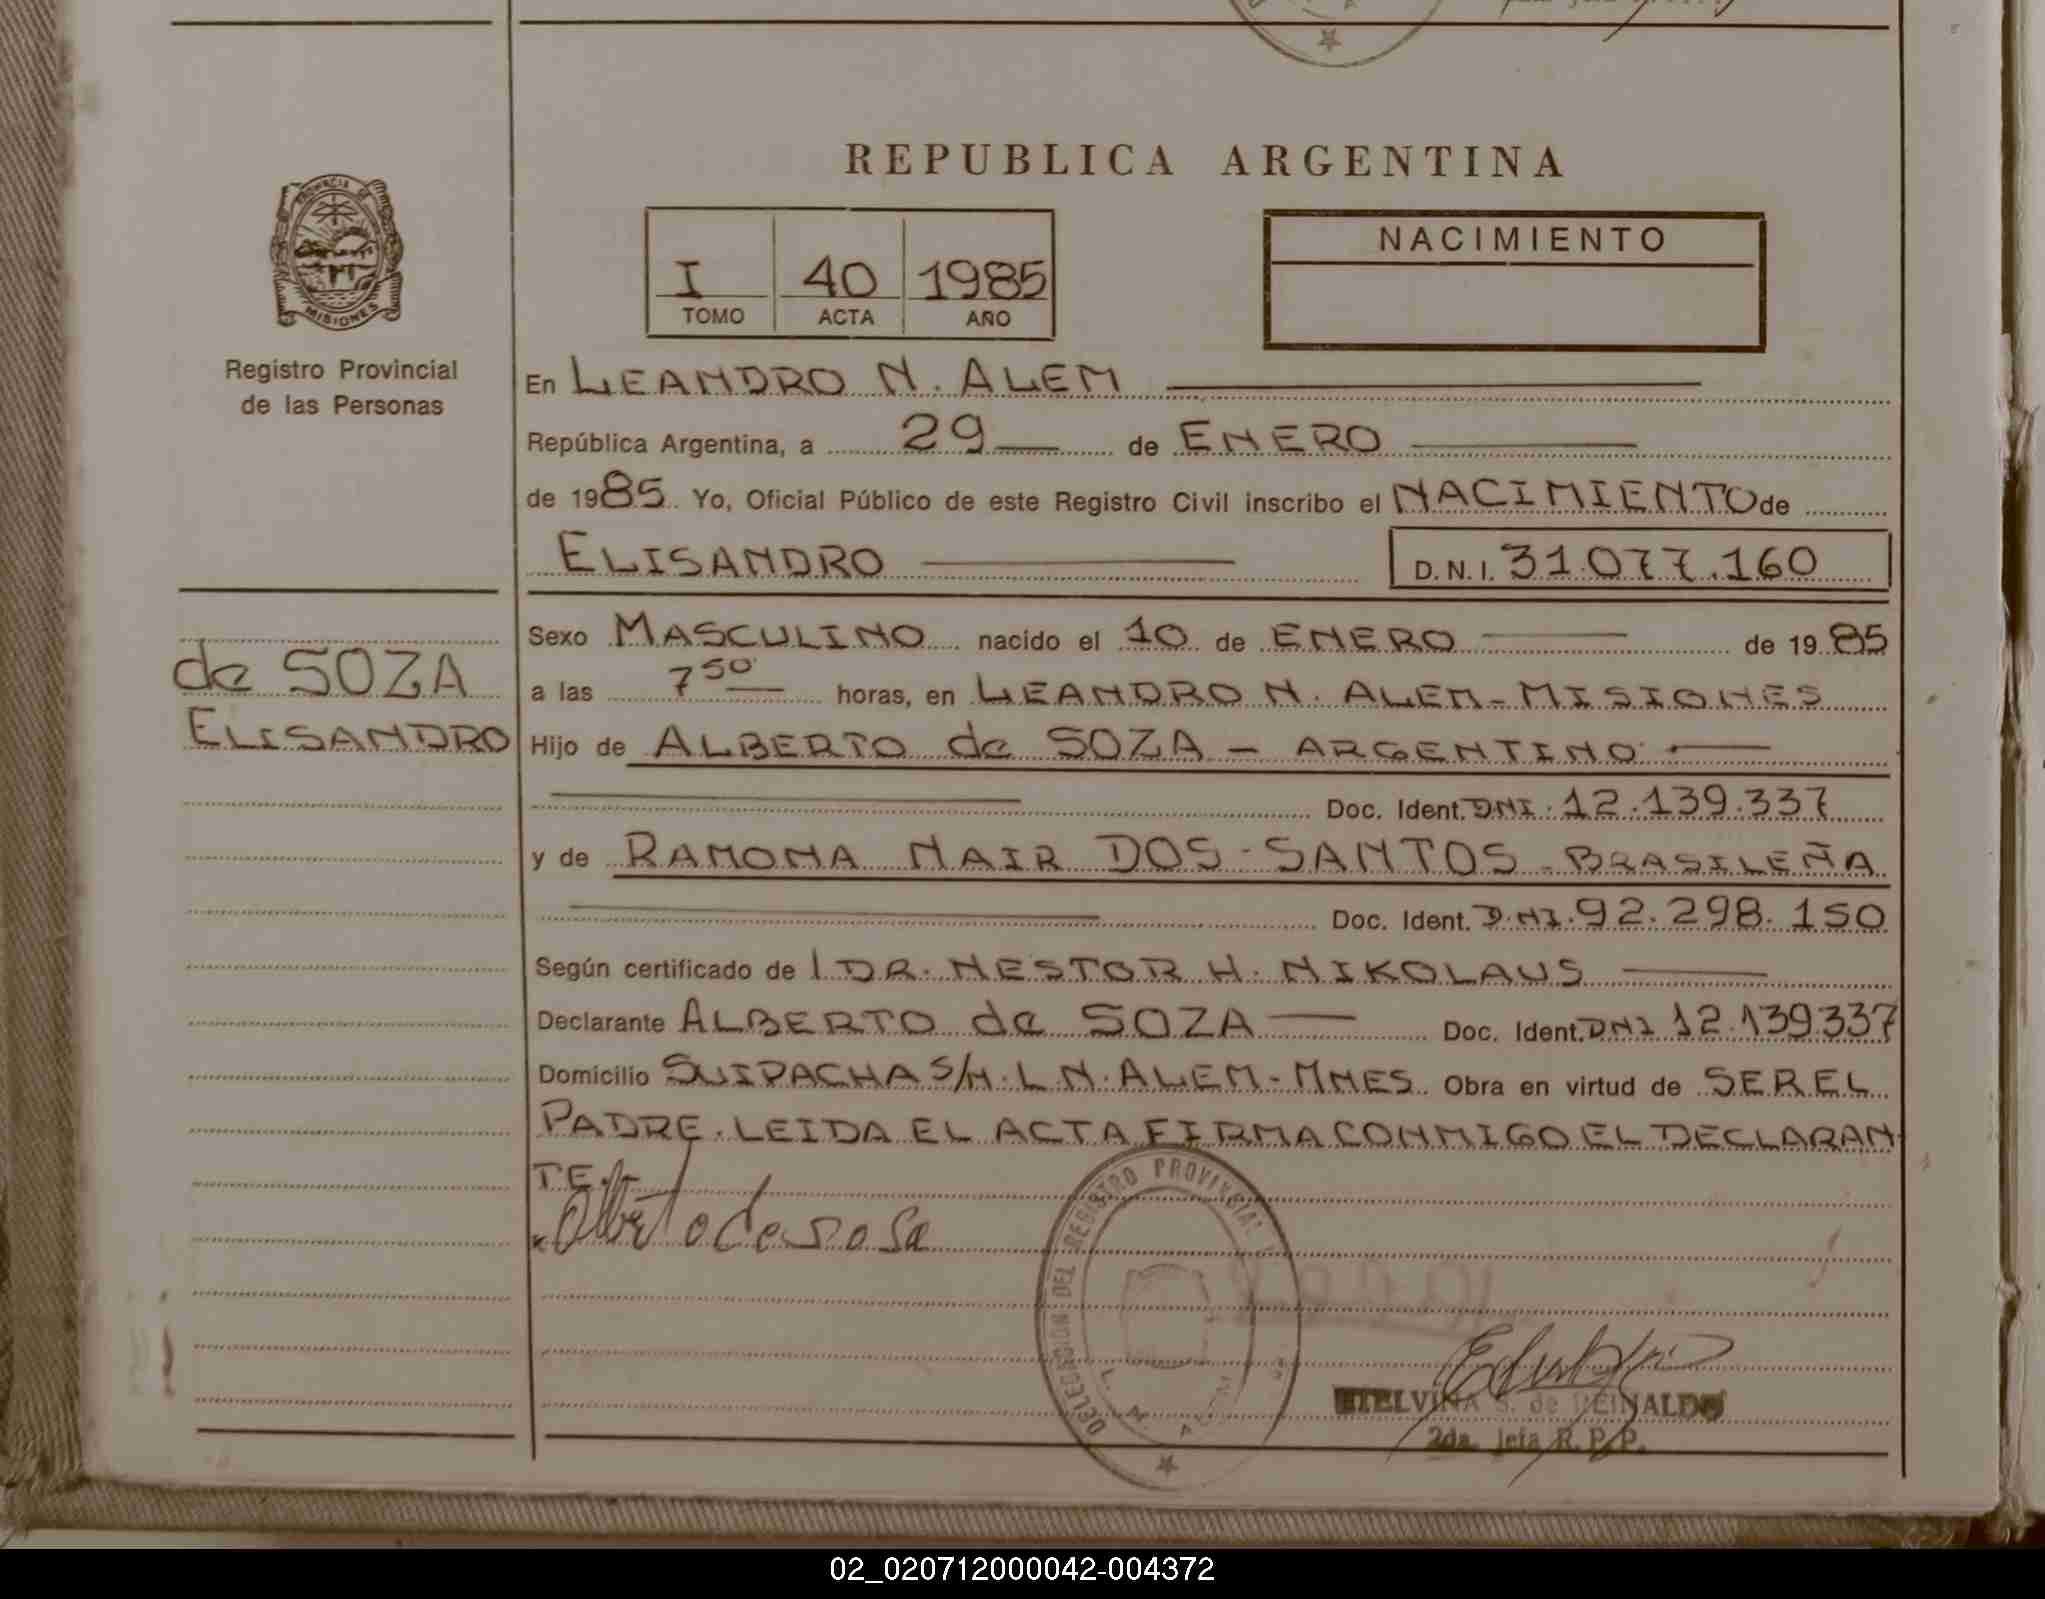 REPUBLICA ARGENTINA
PROVINCIA DE
MISIONES
Registro Provincial
de las Personas
I 40 1985
TOMO ACTA AÑO
NACIMIENTO
En LEANDRO N. ALEM
República Argentina, a 29 de ENERO
de 1985 Yo, Oficial Público de este Registro Civil inscribo el NACIMIENTO de
ELISANDRO D.N.I. 31.077.160
de SOZA
ELISANDRO
Sexo MASCULINO nacido el 10 de ENERO de 1985
a las 7 50 horas, en LEANDRO N. ALEM - MISIONES
Hijo de ALBERTO de SOZA - ARGENTINO
Doc. Ident. DNI. 12.139.337
y de RAMONA NAIR DOS-SANTOS - BRASILEÑA
Doc. Ident. D.NI. 92.298.150
Según certificado de DR. NESTOR H. NIKOLAUS
Declarante ALBERTO de SOZA Doc. Ident. DNI 12.139.337
Domicilio SUIPACHA S/N. L N. ALEM - MNES. Obra en virtud de SER EL
PADRE. LEIDA EL ACTA FIRMA CONMIGO EL DECLARAN
TE.-
Alberto de sosa
DELEGACION DEL REGISTRO PROVINCIAL
L. N. ALEM
ETELVINA S. de REINALDO
2da. Jefa R. P. P.
02_020712000042-004372